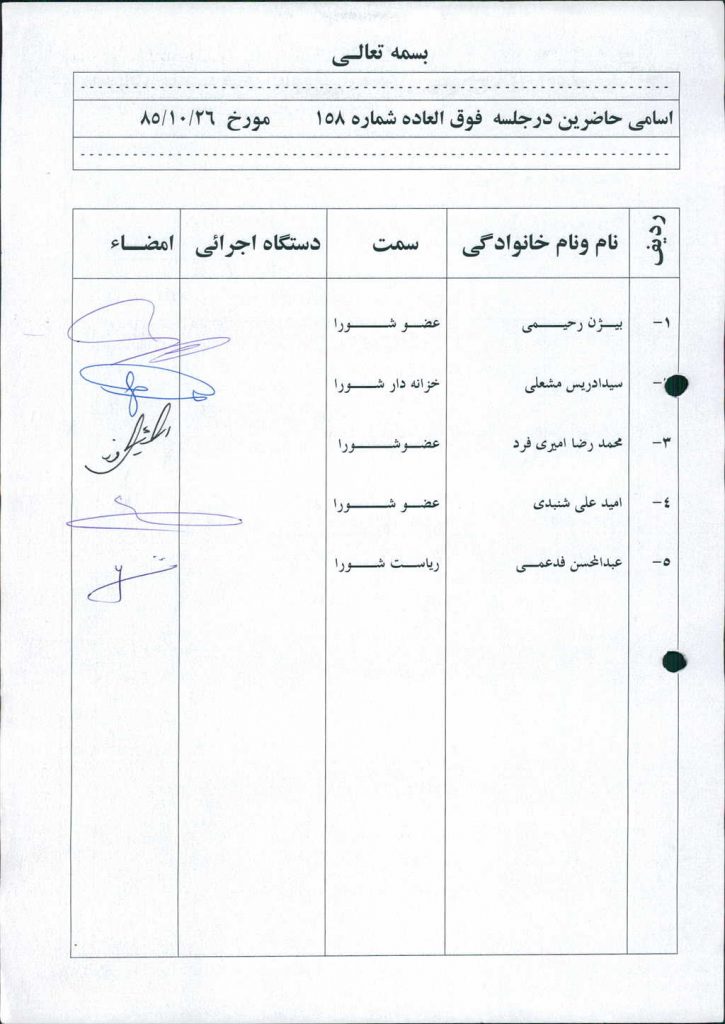 بسمه تعالـی
اسامی حاضرین درجلسه فوق العاده شماره ۱۵۸ مورخ ۸۵/۱۰/۲۶
ردیف نام ونام خانوادگی سمت دستگاه اجرائی امضــاء
۱- بیــژن رحیــمی عضــو شـــورا
سیدادریس مشعلی خزانه دار شـــورا
۳- محمد رضا امیری فرد عضــوشـــورا
٤- امید علی شنبدی عضــو شـــورا
۵- عبدالمحسن فدعمــی ریاســت شـــورا